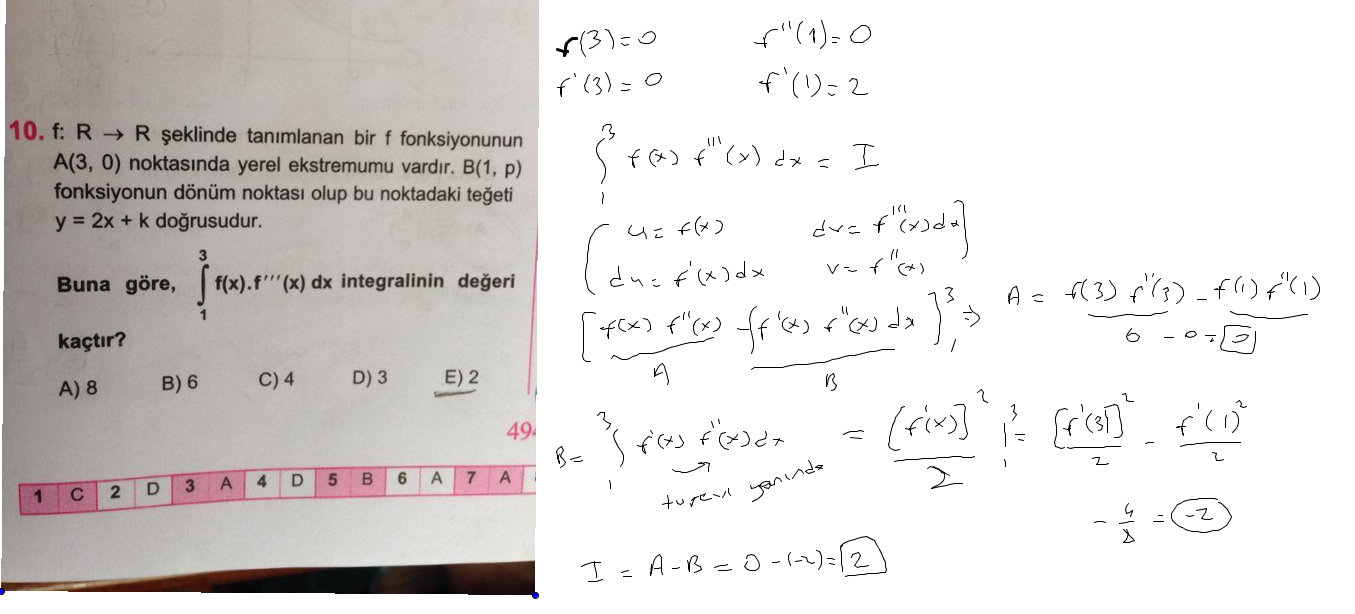 10. f: R → R şeklinde tanımlanan bir f fonksiyonunun
A(3, 0) noktasında yerel ekstremumu vardır. B(1, p)
fonksiyonun dönüm noktası olup bu noktadaki teğeti
y = 2x + k doğrusudur.
Buna göre, ∫₁³ f(x).f'''(x) dx integralinin değeri
kaçtır?
A) 8 B) 6 C) 4 D) 3 E) 2
49
1 C 2 D 3 A 4 D 5 B 6 A 7 A
f(3)=0 f''(1)=0
f'(3)=0 f'(1)=2
∫₁³ f(x) f'''(x) dx = I
u = f(x) dv = f'''(x)dx
du = f'(x)dx v = f''(x)
[f(x) f''(x) - ∫f'(x) f''(x) dx]₁³ ⇒ A = f(3) f''(3) - f(1) f''(1)
A B 0 - 0 = 0
B = ∫₁³ f'(x) f''(x)dx = [f'(x)]²/2 |₁³ = [f'(3)]²/2 - f'(1)²/2
türevi yanında
= -2
I = A - B = 0 - (-2) = 2